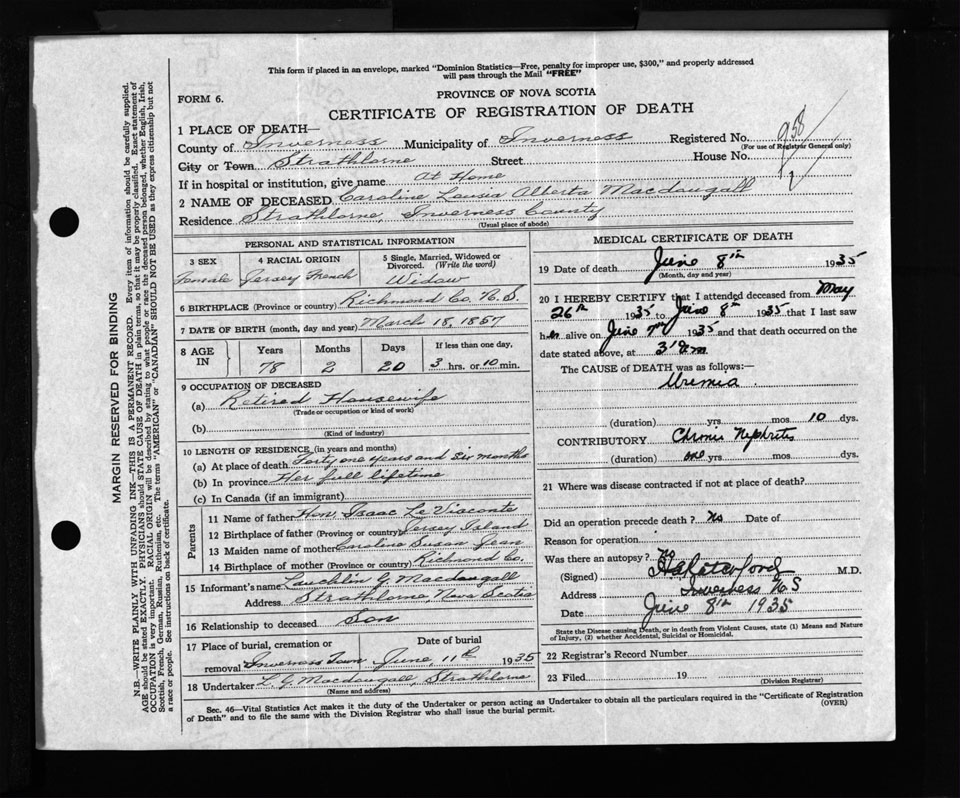 This form if placed in an envelope, marked "Dominion Statistics—Free, penalty for improper use, $300," and properly addressed
will pass through the Mail "FREE"
PROVINCE OF NOVA SCOTIA
FORM 6.
CERTIFICATE OF REGISTRATION OF DEATH
1 PLACE OF DEATH—
County of Inverness Municipality of Inverness Registered No. 958
(For use of Registrar General only)
City or Town Strathlorne Street House No. 2
If in hospital or institution, give name At Home
2 NAME OF DECEASED Caroline Lousia Alberta Macdougall
Residence Strathlorne, Inverness County
(Usual place of abode)
PERSONAL AND STATISTICAL INFORMATION
3 SEX 4 RACIAL ORIGIN 5 Single, Married, Widowed or
Divorced. (Write the word)
Female Jersey French Widow
6 BIRTHPLACE (Province or country) Richmond Co. N.S.
7 DATE OF BIRTH (month, day and year) March 18, 1857
8 AGE IN Years Months Days If less than one day,
78 2 20 3 hrs. or 10 min.
9 OCCUPATION OF DECEASED
(a) Retired Housewife
(Trade or occupation or kind of work)
(b)
(Kind of industry)
10 LENGTH OF RESIDENCE (in years and months)
(a) At place of death Forty one years and six months
(b) In province Her full lifetime
(c) In Canada (if an immigrant)
Parents
11 Name of father Hon. Isaac Le Viaconte
12 Birthplace of father (Province or country) Jersey Island
13 Maiden name of mother Caroline Susan Jean
14 Birthplace of mother (Province or country) Richmond Co.
15 Informant's name Lauchlin G Macdougall
Address Strathlorne, Nova Scotia
16 Relationship to deceased Son
17 Place of burial, cremation or Date of burial
removal Inverness Town June 11th 1935
18 Undertaker L. G Macdougall, Strathlorne
(Name and address)
MEDICAL CERTIFICATE OF DEATH
19 Date of death June 8th 1935
(Month, day and year)
20 I HEREBY CERTIFY that I attended deceased from May
26th 1935 to June 8th 1935 that I last saw
her alive on June 7th 1935 and that death occurred on the
date stated above, at 3
The CAUSE OF DEATH was as follows:—
Uremia
(duration) yrs. mos. 10 dys.
CONTRIBUTORY Chronic Nephritis
(duration) one yrs. mos. dys.
21 Where was disease contracted if not at place of death?
Did an operation precede death? No Date of
Reason for operation
Was there an autopsy? no
(Signed) M.D.
Address Inverness N S
Date June 8th 1935
State the Disease causing Death, or in death from Violent Causes, state (1) Means and Nature
of Injury, (2) whether Accidental, Suicidal or Homicidal.
22 Registrar's Record Number
23 Filed 19
(Division Registrar)
Sec. 46—Vital Statistics Act makes it the duty of the Undertaker or person acting as Undertaker to obtain all the particulars required in the "Certificate of Registration
of Death" and to file the same with the Division Registrar who shall issue the burial permit.
(OVER)
MARGIN RESERVED FOR BINDING
N.B.—WRITE PLAINLY WITH UNFADING INK—THIS IS A PERMANENT RECORD. Every item of information should be carefully supplied.
AGE should be stated EXACTLY. PHYSICIANS should STATE CAUSE OF DEATH in plain terms, so that it may be properly classified. Exact statement of
OCCUPATION is very important. RACIAL ORIGIN will be described by stating to what people or race the deceased person belonged, whether English, Irish,
Scottish, French, German, Russian, Ruthenian, etc. The terms "AMERICAN" or "CANADIAN" SHOULD NOT BE USED as they express citizenship but not
a race or people. See instructions on back of certificate.